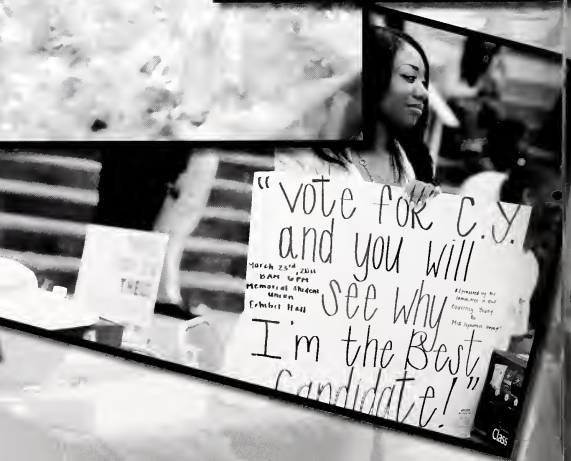 "vote for C.Y.
and you will
see why
I'm the Best
Candidate!"
March 23rd, 2011
8AM 6PM
Memorial Student
Union
Exhibit Hall
THE
Class